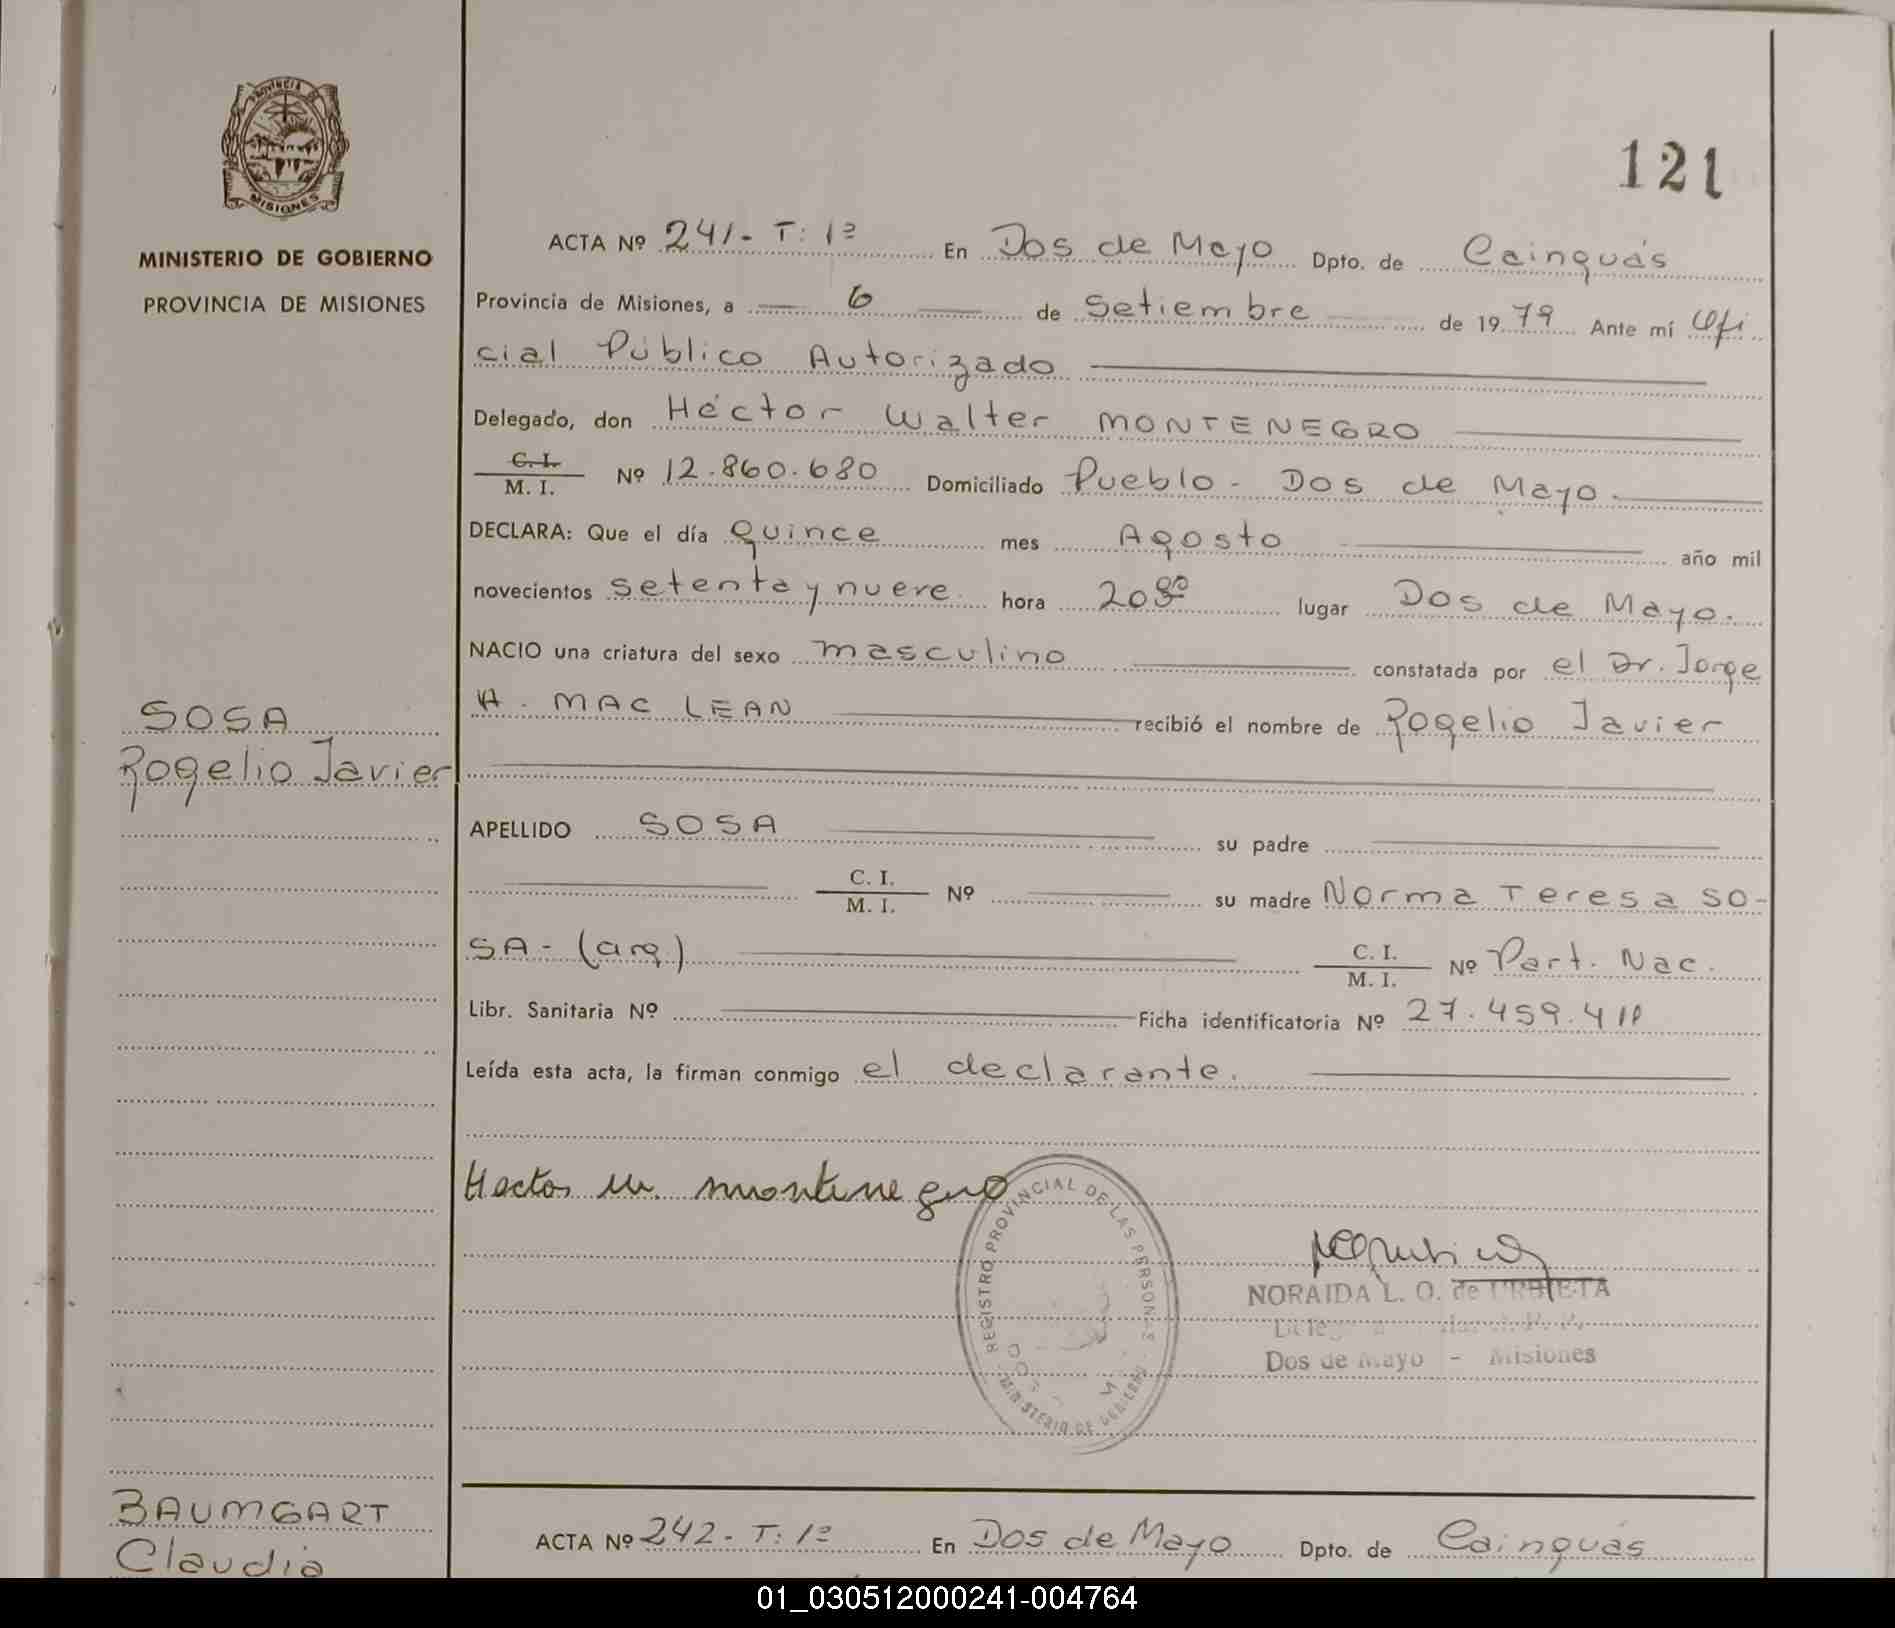 PROVINCIA DE
MISIONES
MINISTERIO DE GOBIERNO
PROVINCIA DE MISIONES
121
ACTA Nº 241- T: 1º En Dos de Mayo Dpto. de Cainguás
Provincia de Misiones, a 6 de Setiembre de 1979 Ante mí Ofi
cial Público Autorizado
Delegado, don Héctor Walter MONTENEGRO
C. I.
M. I. Nº 12.860.680 Domiciliado Pueblo - Dos de Mayo.
DECLARA: Que el día quince mes Agosto año mil
novecientos setenta y nueve hora 20 lugar Dos de Mayo.
NACIO una criatura del sexo masculino constatada por el Dr. Jorge
A. MAC LEAN recibió el nombre de Rogelio Javier
SOSA
Rogelio Javier
APELLIDO SOSA su padre
C. I.
M. I. Nº su madre Norma Teresa SO-
SA- (arg.) C. I.
M. I. Nº Part. Nac.
Libr. Sanitaria Nº Ficha identificatoria Nº 27.459.411
Leída esta acta, la firman conmigo el declarante.
Hector W. montenegro
REGISTRO PROVINCIAL DE LAS PERSONAS
MINISTERIO DE GOBIERNO
NORAIDA L. O. de URBIETA
Dos de Mayo - Misiones
BAUMGART
Claudia
ACTA Nº 242- T: 1º En Dos de Mayo Dpto. de Cainguás
01_030512000241-004764